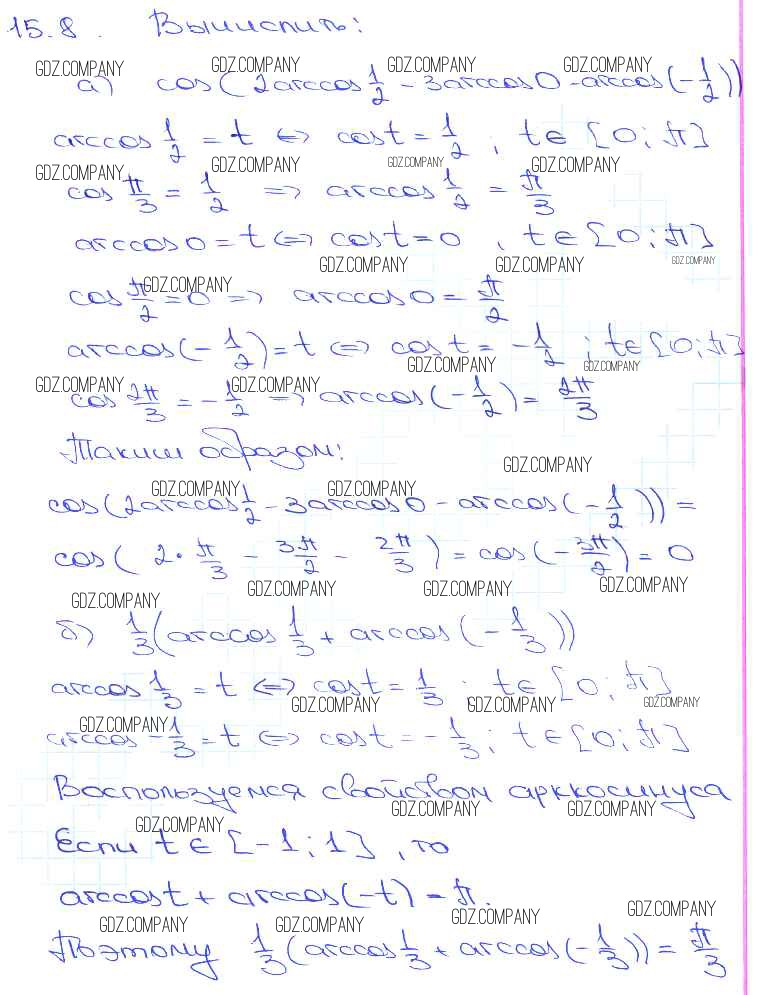 15.8. Вычислить:
GDZ.COMPANY GDZ.COMPANY GDZ.COMPANY GDZ.COMPANY
а) cos(2arccos 1/2 - 3arccos0 - arccos(-1/2))
arccos 1/2 = t ⇔ cost = 1/2 ; t ∈ [0; π]
GDZ.COMPANY GDZ.COMPANY GDZ.COMPANY GDZ.COMPANY
cos π/3 = 1/2 ⇒ arccos 1/2 = π/3
arccos0 = t ⇔ cost = 0 , t ∈ [0; π]
GDZ.COMPANY GDZ.COMPANY GDZ.COMPANY
GDZ.COMPANY
cos π/2 = 0 ⇒ arccos0 = π/2
arccos(-1/2) = t ⇔ cost = -1/2 ; t ∈ [0; π]
GDZ.COMPANY GDZ.COMPANY
GDZ.COMPANY GDZ.COMPANY
cos 2π/3 = -1/2 ⇒ arccos(-1/2) = 2π/3
Таким образом:
GDZ.COMPANY
GDZ.COMPANY GDZ.COMPANY
cos(2arccos 1/2 - 3arccos0 - arccos(-1/2)) =
cos(2 · π/3 - 3π/2 - 2π/3) = cos(-3π/2) = 0
GDZ.COMPANY GDZ.COMPANY GDZ.COMPANY GDZ.COMPANY
б) 1/3(arccos 1/3 + arccos(-1/3))
arccos 1/3 = t ⇔ cost = 1/3 ; t ∈ [0; π]
GDZ.COMPANY GDZ.COMPANY GDZ.COMPANY
GDZ.COMPANY
arccos -1/3 = t ⇔ cost = -1/3 ; t ∈ [0; π]
Воспользуемся свойством арккосинуса
GDZ.COMPANY GDZ.COMPANY
GDZ.COMPANY
Если t ∈ [-1; 1] , то
arccost + arccos(-t) = π.
GDZ.COMPANY GDZ.COMPANY GDZ.COMPANY GDZ.COMPANY
Поэтому 1/3(arccos 1/3 + arccos(-1/3)) = π/3